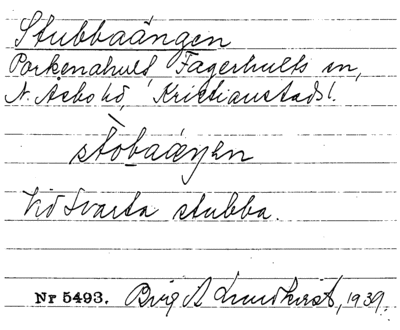 Stubbaängen
Porkenahult Fagerhults sn,
N. Åsbo hd, Kristianstads l.
stobaäŋen
Vid Svarta stubba.
Nr 5493. Birg A Lundkvist, 1939.